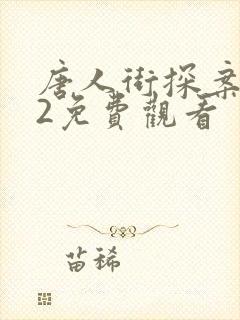 唐人街探案
2免費觀看
苗稀